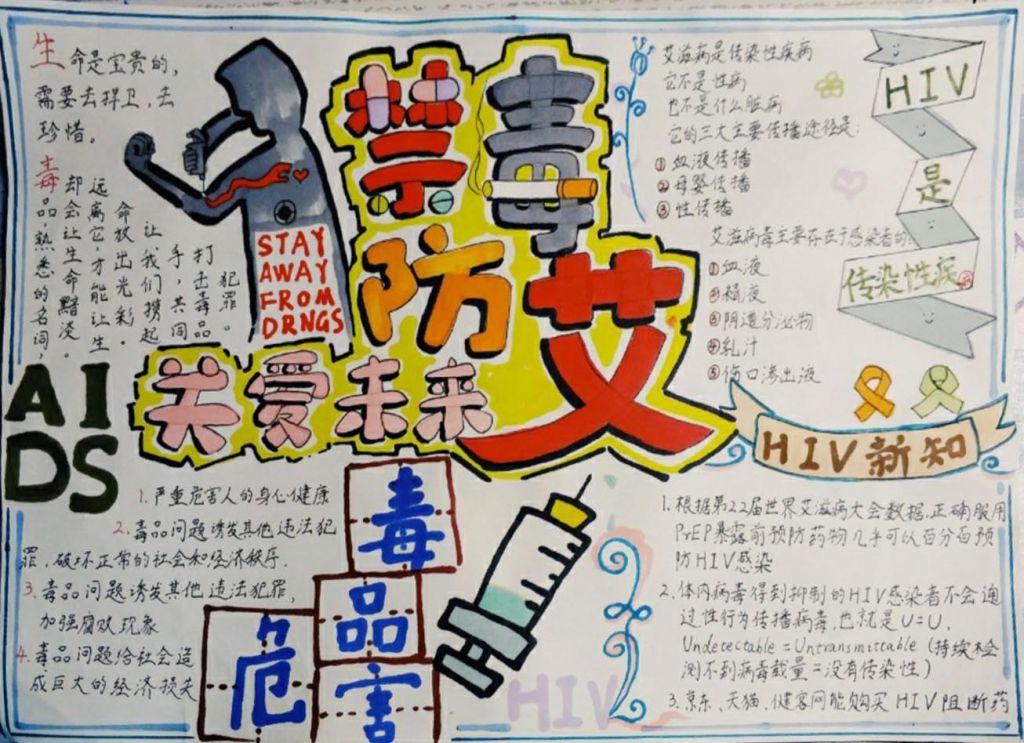 生命是宝贵的,
需要去捍卫,去
珍惜。
毒品,熟悉的名词,
却会让生命黯淡。
远离它,才能让生
命放出光彩。
让我们携起
手,共同
打击毒品
犯罪。
STAY
AWAY
FROM
DRNGS
禁毒
防艾
关爱未来
AI
DS
艾滋病是传染性疾病
它不是性病
也不是什么脏病
它的三大主要传播途径是:
①血液传播
②母婴传播
③性传播
艾滋病毒主要存在于感染者的:
①血液
②精液
③阴道分泌物
④乳汁
⑤伤口渗出液
HIV
是
传染性疾病
HIV新知
1.严重危害人的身心健康
2.毒品问题诱发其他违法犯
罪,破坏正常的社会和经济秩序.
3.毒品问题诱发其他违法犯罪,
加强腐败现象
4.毒品问题给社会造
成巨大的经济损失
毒
品
危害
1.根据第22届世界艾滋病大会数据.正确服用
PrEP暴露前预防药物几乎可以百分百预
防HIV感染
2.体内病毒得到抑制的HIV感染者不会通
过性行为传播病毒,也就是U=U.
Undetectable=Untransmittable(持续检
测不到病毒载量=没有传染性)
3.京东、天猫、健客网能购买HIV阻断药
HIV